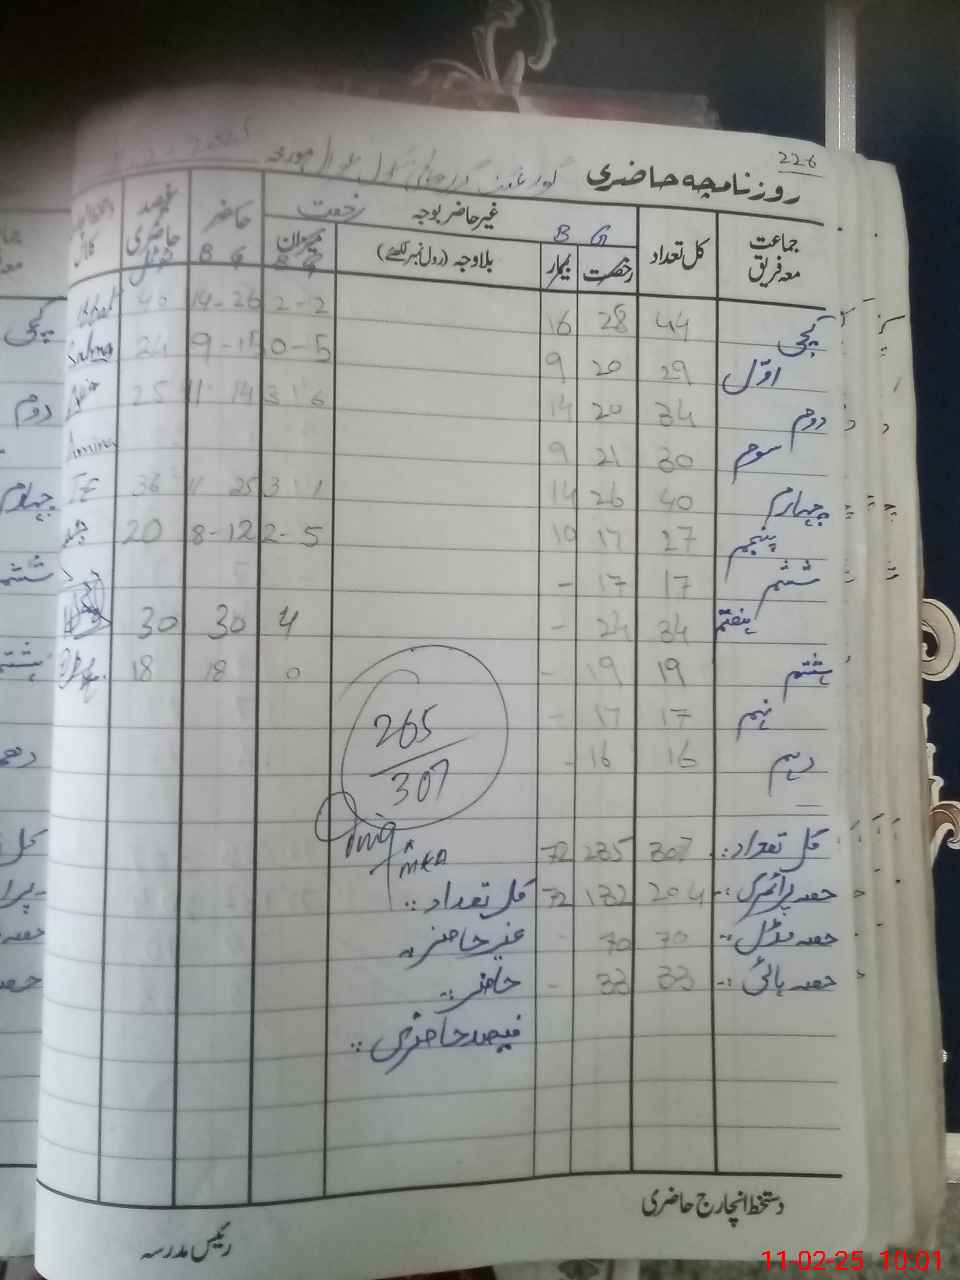 226
روزنامچہ حاضری
جماعت معہ فریق کل تعداد غیر حاضر بوجہ رخصت حاضر حاضری
G B
رخصت بیمار بلاوجہ (رول نمبر لکھئے) میزان B G
کچی 44 28 16 2-2 14-26 40
اوّل 29 20 9 0-5 9-15 24 Salma
دوم 34 20 14 3 6 11 14 25
سوم 30 21 9 Amina
چہارم 40 26 14 3 1 11 25 36
پنجم 27 17 10 2-5 8-12 20
ششم 17 17 -
ہفتم 34 24 - 4 30 30
ہشتم 19 19 - 0 18 18
نہم 17 17 -
دہم 16 16 -
265
307
کل تعداد:- 307 235 72
حصہ پرائمری:- 204 132 72 کل تعداد:-
حصہ مڈل:- 70 70 - غیر حاضر:-
حصہ ہائی:- 33 33 - حاضر:-
فیصد حاضری:-
دستخط انچارج حاضری
رئیس مدرسہ
11-02-25 10:01
کچی
دوم
چہارم
ششم